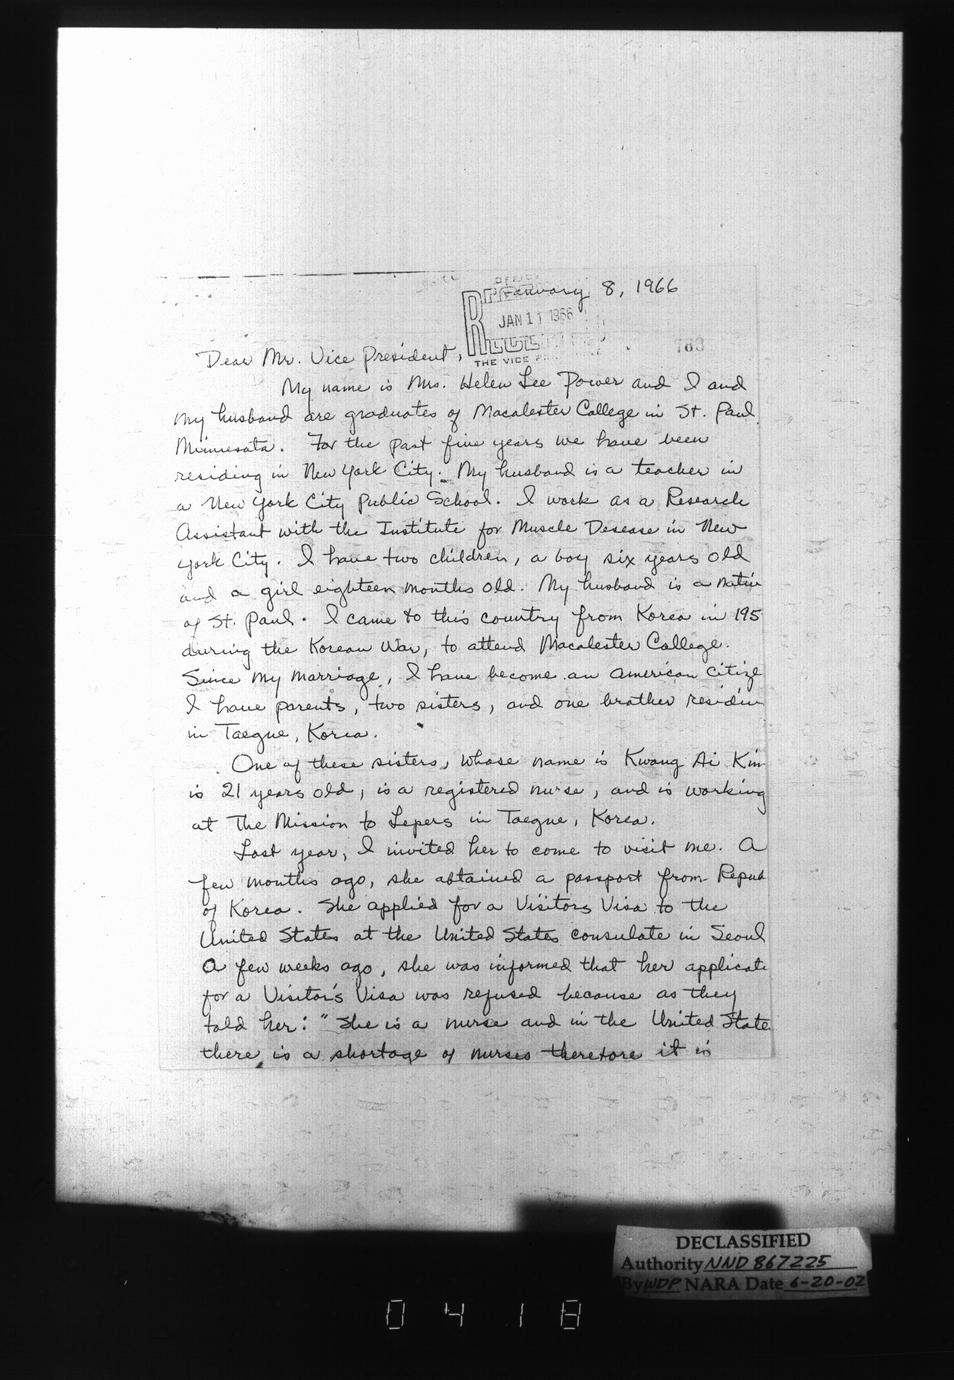 January 8, 1966
JAN 11 1966
THE VICE
763
Dear Mr. Vice President,
My name is Mrs. Helen Lee Power and I and
my husband are graduates of Macalester College in St. Paul
Minnesota. For the past five years we have been
residing in New York City. My husband is a teacher in
a New York City Public School. I work as a Research
Assistant with the Institute for Muscle Desease in New
York City. I have two children, a boy six years old
and a girl eighteen months old. My husband is a nativ
of St. Paul. I came to this country from Korea in 195
during the Korean War, to attend Macalester College.
Since my marriage, I have become an American Citize
I have parents, two sisters, and one brother residin
in Taegue, Korea.
One of these sisters, whose name is Kwang Ai Kim
is 21 years old, is a registered nurse, and is working
at The Mission to Lepers in Taegue, Korea.
Last year, I invited her to come to visit me. A
few months ago, she obtained a passport from Repub
of Korea. She applied for a Visitors Visa to the
United States at the United States consulate in Seoul
A few weeks ago, she was informed that her applicati
for a Visitor's Visa was refused because as they
told her: "She is a nurse and in the United State
there is a shortage of nurses therefore it is
DECLASSIFIED
Authority NND 867225
By WDP NARA Date 6-20-02
0418